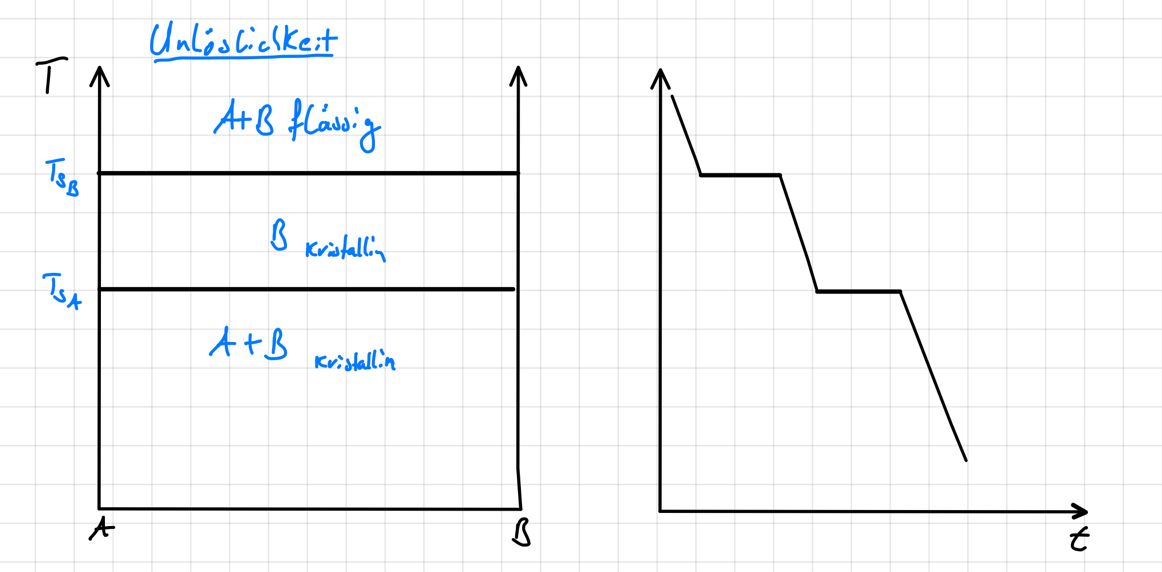 Unlöslichkeit
T
A+B flüssig
TSB
B kristallin
TSA
A+B kristallin
A
B
t